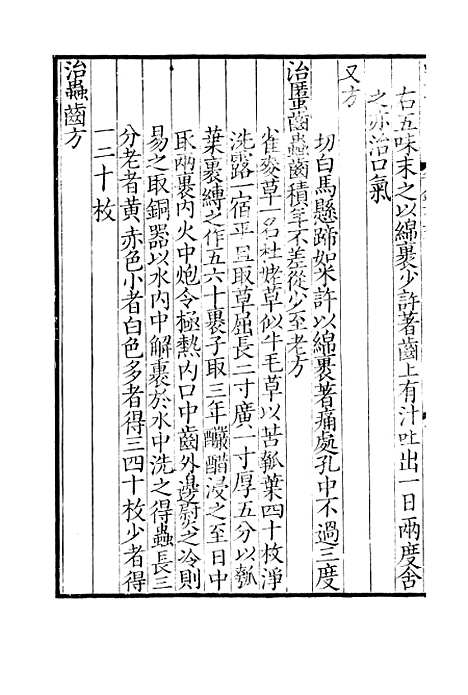 右五味末之以綿裹少許著齒上有汁吐出一日兩度含
之亦治口氣
又方
切白馬懸蹄如米許以綿裹著痛處孔中不過三度
治䘌齒蟲齒積年不差從少至老方
雀麥草一名杜姥草似牛毛草以苦瓠葉四十枚淨
洗露一宿平旦取草屈長二寸廣一寸厚五分以瓠
葉裹縛之作五六十裹子取三年釅醋浸之至日中
取兩裹內火中炮令極熱內口中齒外邊熨之冷則
易之取銅器以水內中解裹於水中洗之得蟲長三
分老者黃赤色小者白色多者得三四十枚少者得
一二十枚
治蟲齒方